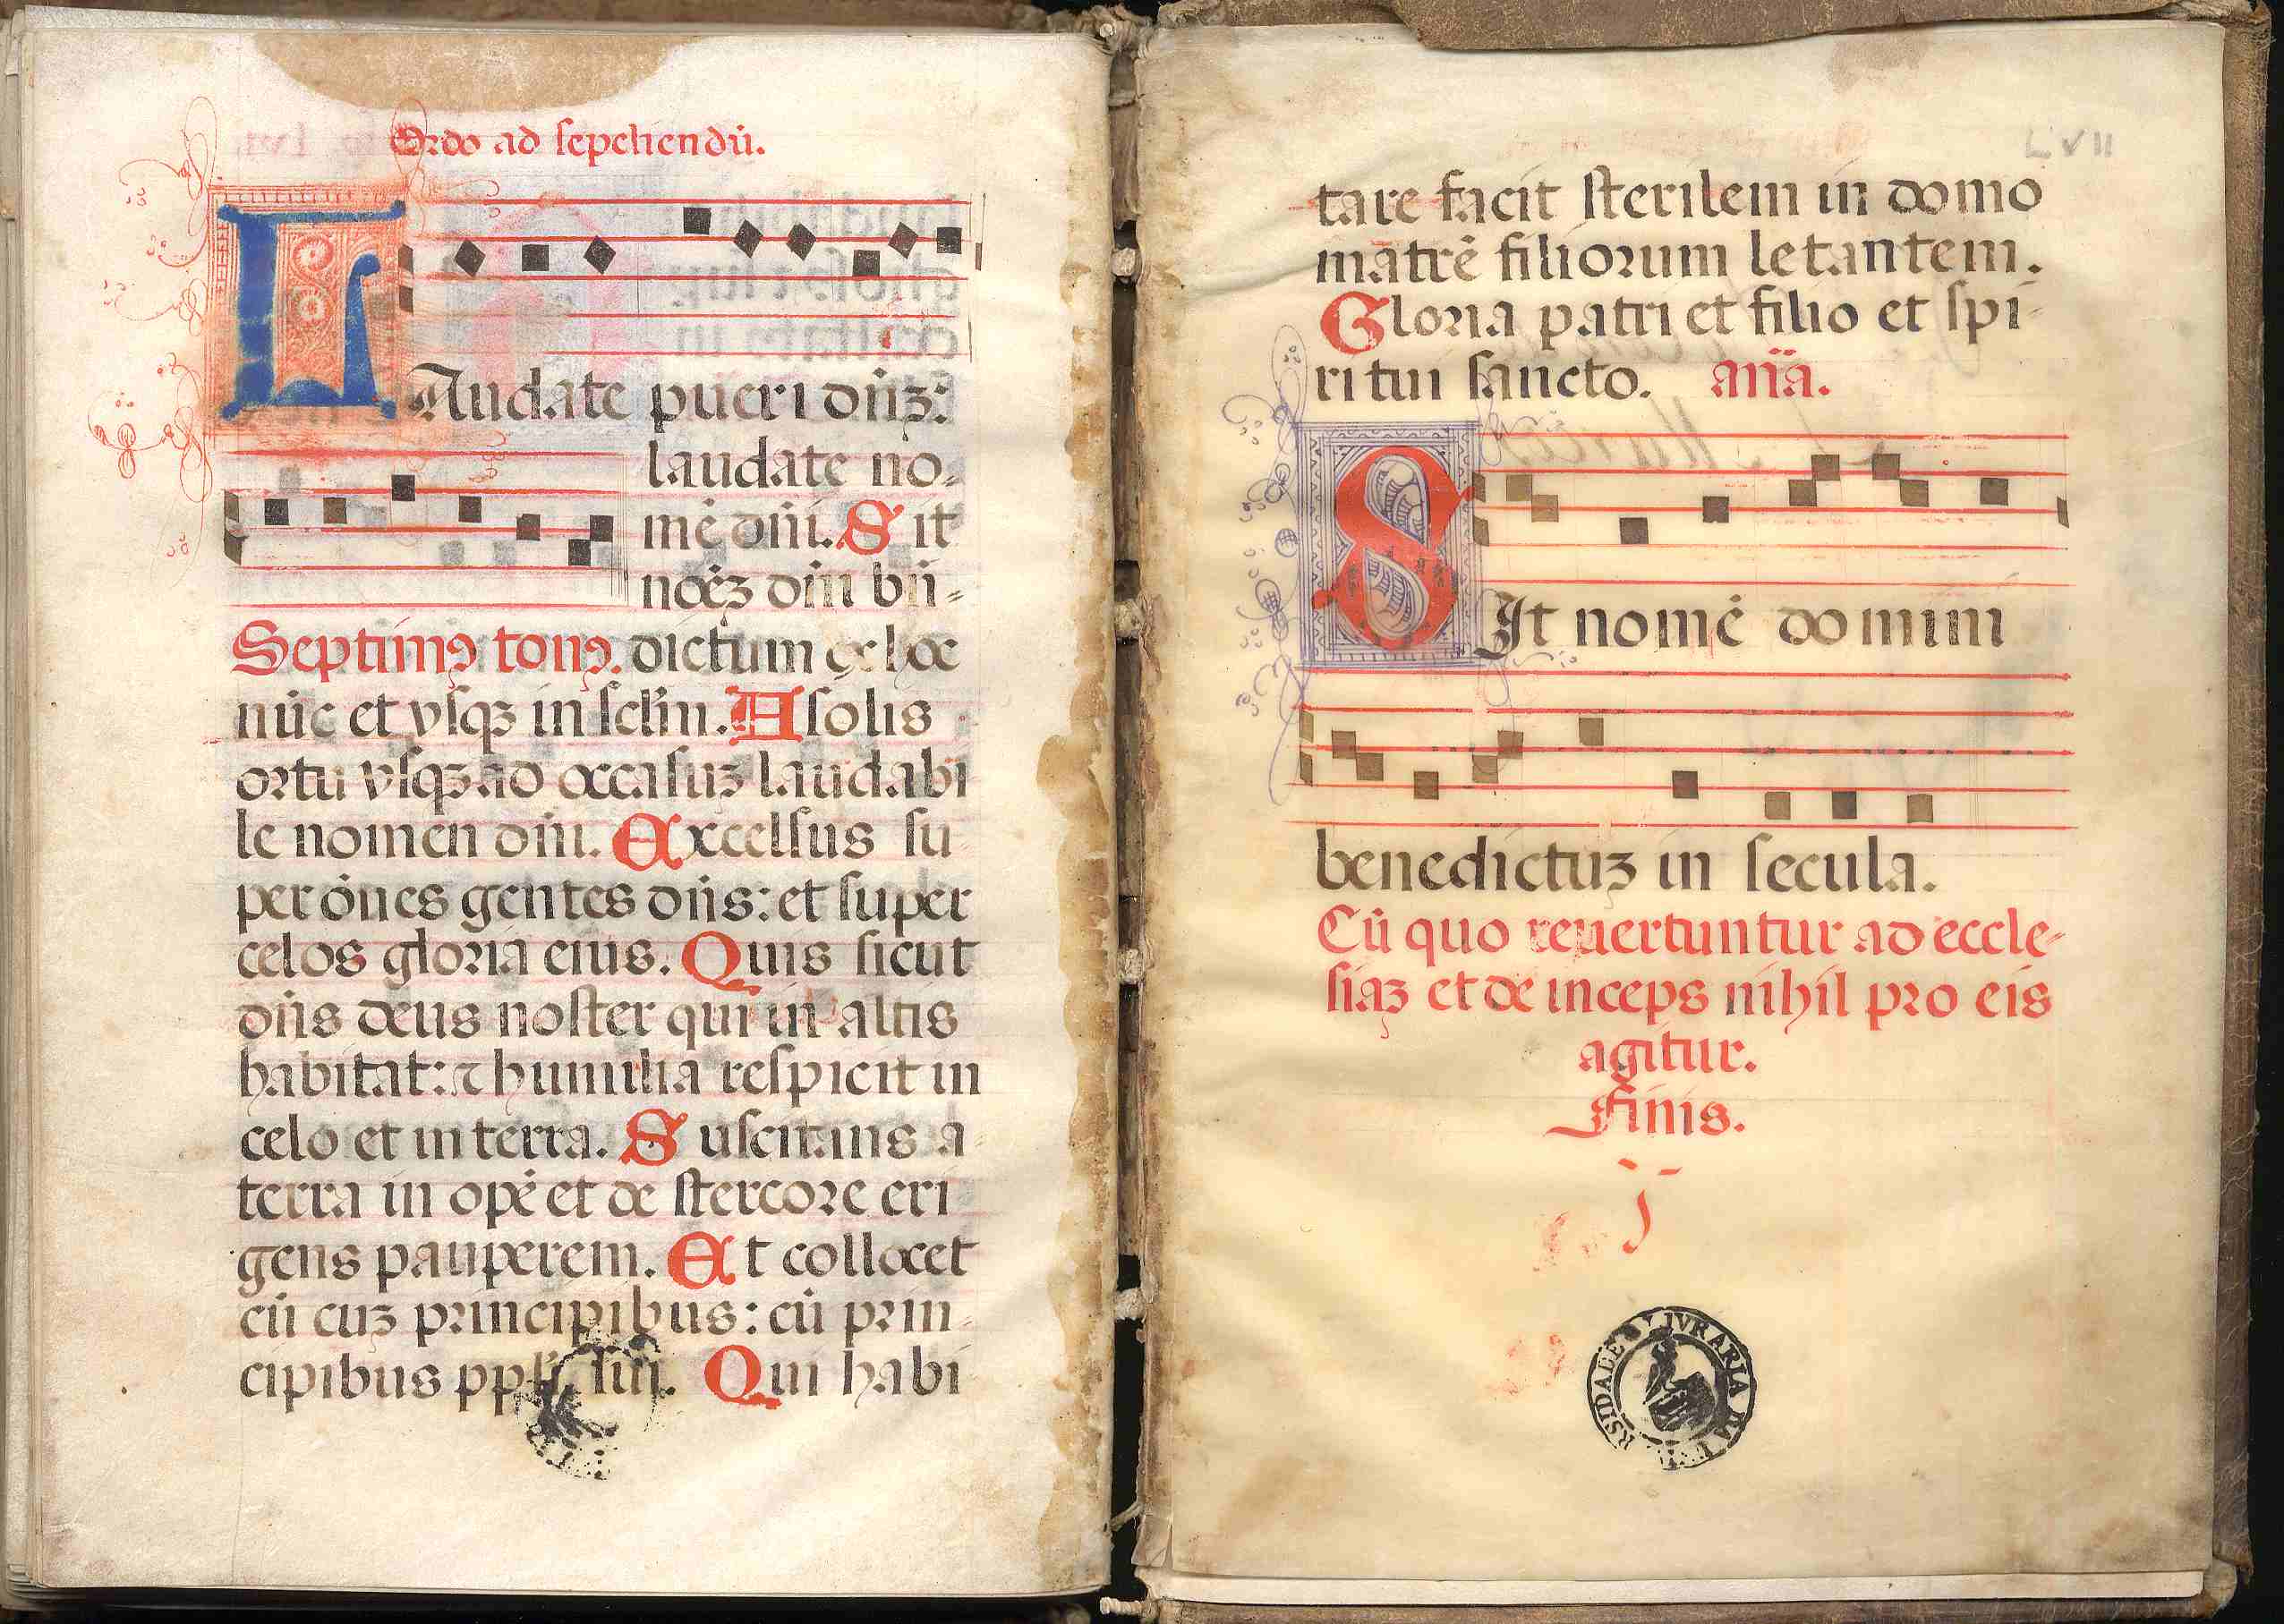 Ordo ad sepeliendũ.
LAudate pueri dñꝫ:
laudate no-
mẽ dñi. Sit
nomẽ dñi bñ-
Septimꝰ tonꝰ. dictum ex hoc
nũc et vsqꝫ in sclm̃. A solis
ortu vsqꝫ ad occasuꝫ laudabi
le nomen dñi. Excelsus su
per om̃es gentes dñs: et super
celos gloria eius. Quis sicut
dñs deus noster qui in altis
habitat: ⁊ humilia respicit in
celo et in terra. Suscitans a-
terra in opẽ et de stercore eri
gens pauperem. Et collocet
cũ cuꝫ principibus: cũ prin-
cipibus ppl̃i sui. Qui habi
LVII
tare facit sterilem in domo
matrẽ filiorum letantem.
Gloria patri et filio et spi-
ritui sancto. añã.
SIt nomẽ domini
benedictuꝫ in secula.
Cũ quo reuertuntur ad eccle-
siaꝫ et de inceps nihil pro eis
agitur.
Finis.
LIVRARIA